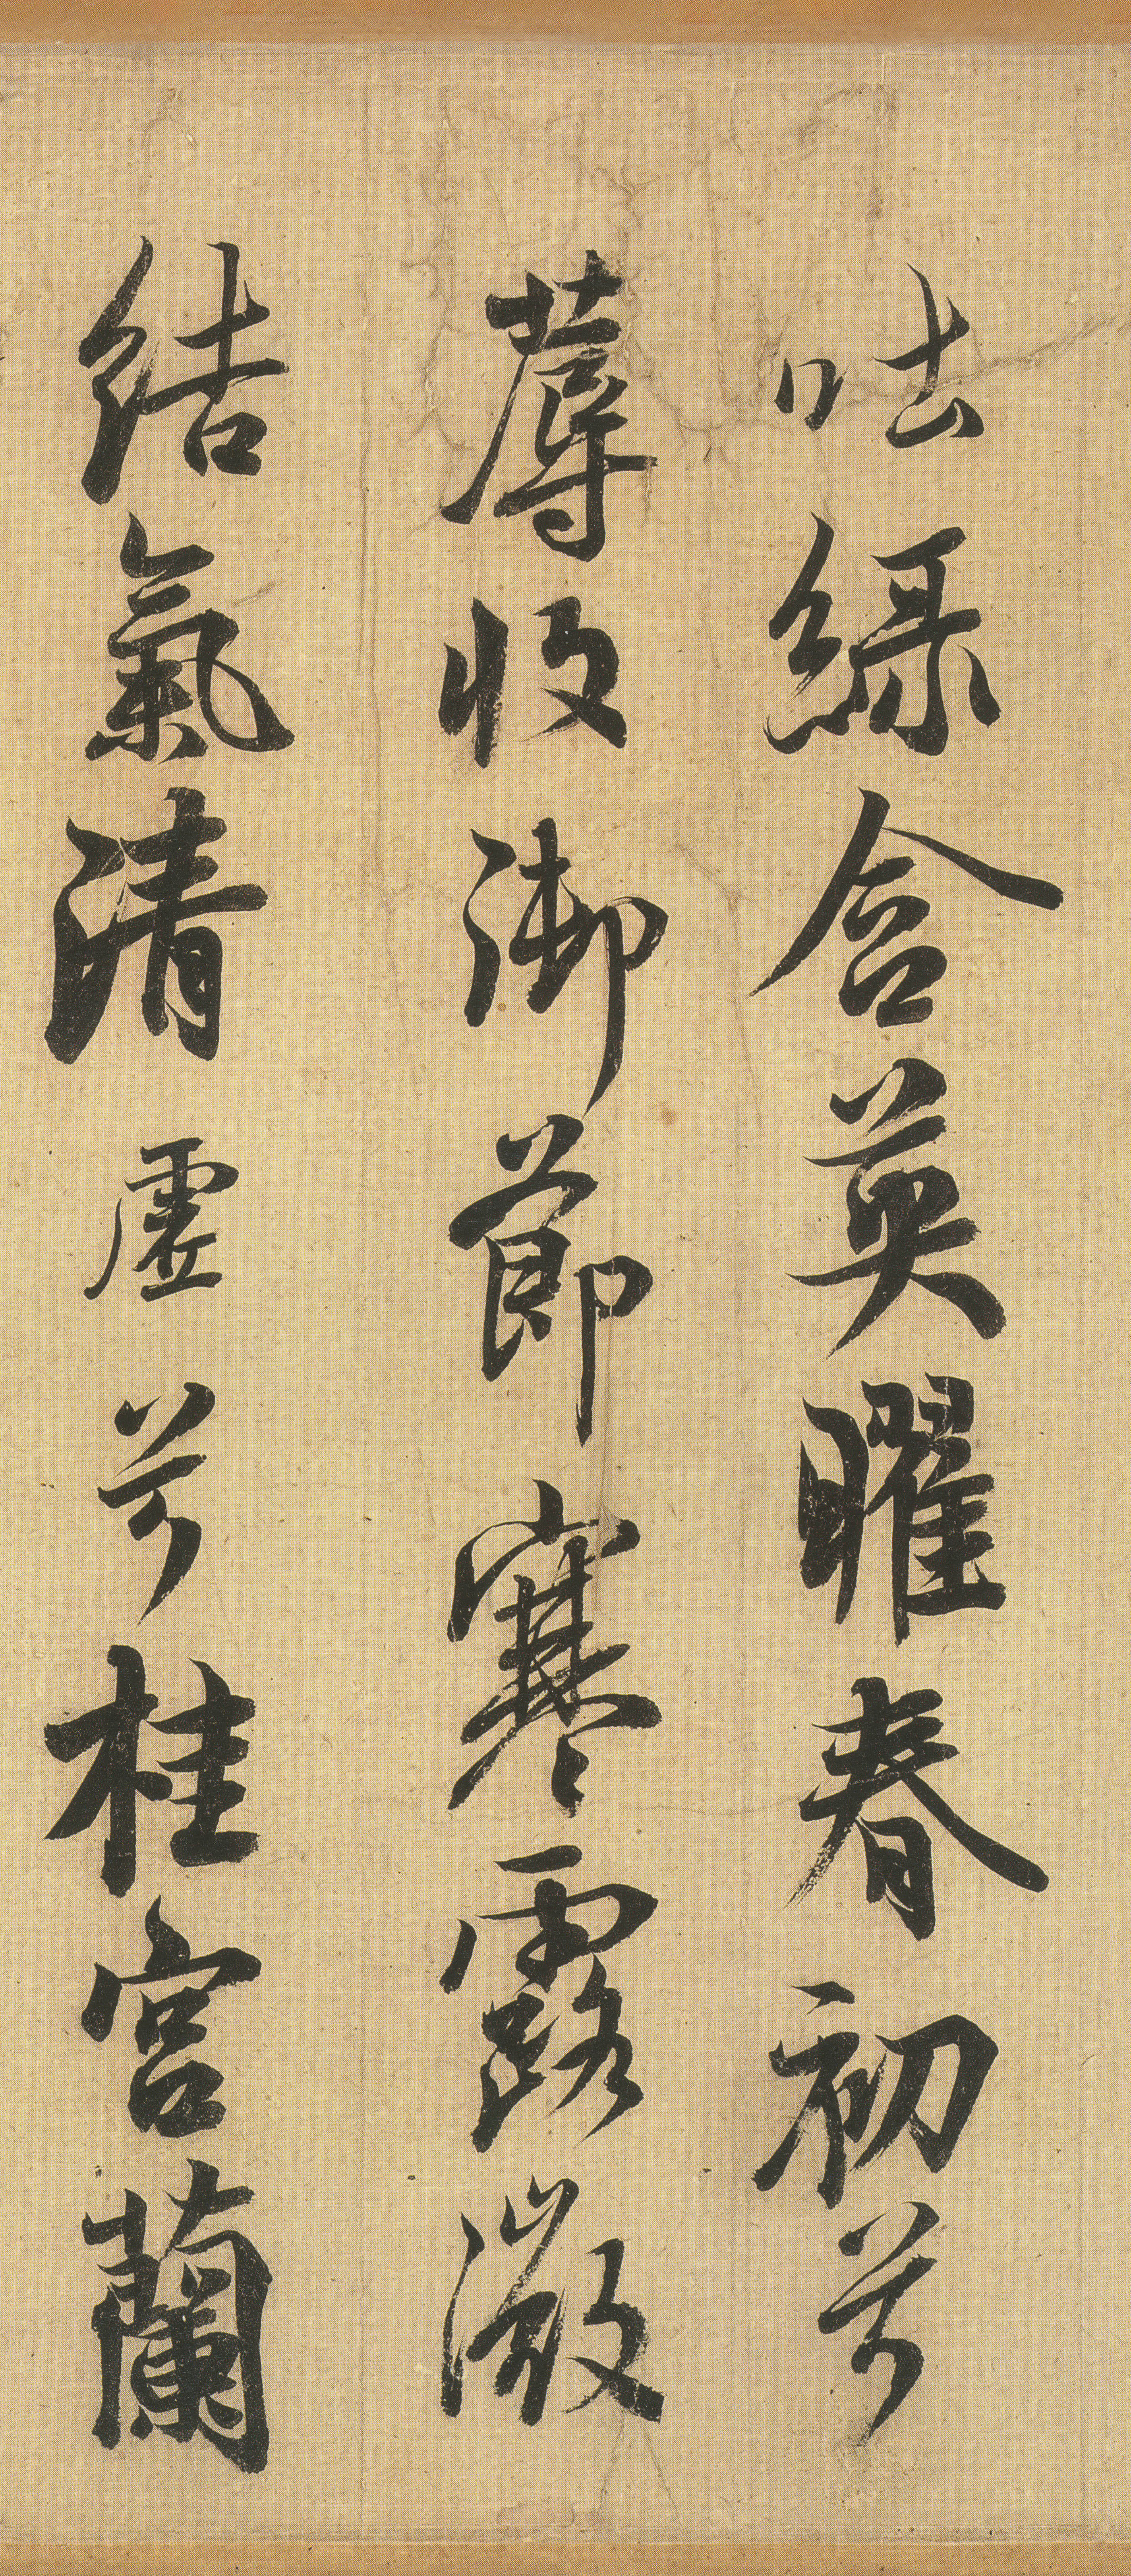 吐綠含英曜春初兮
蓐收御節寒露微
結氣清虛兮桂宮蘭